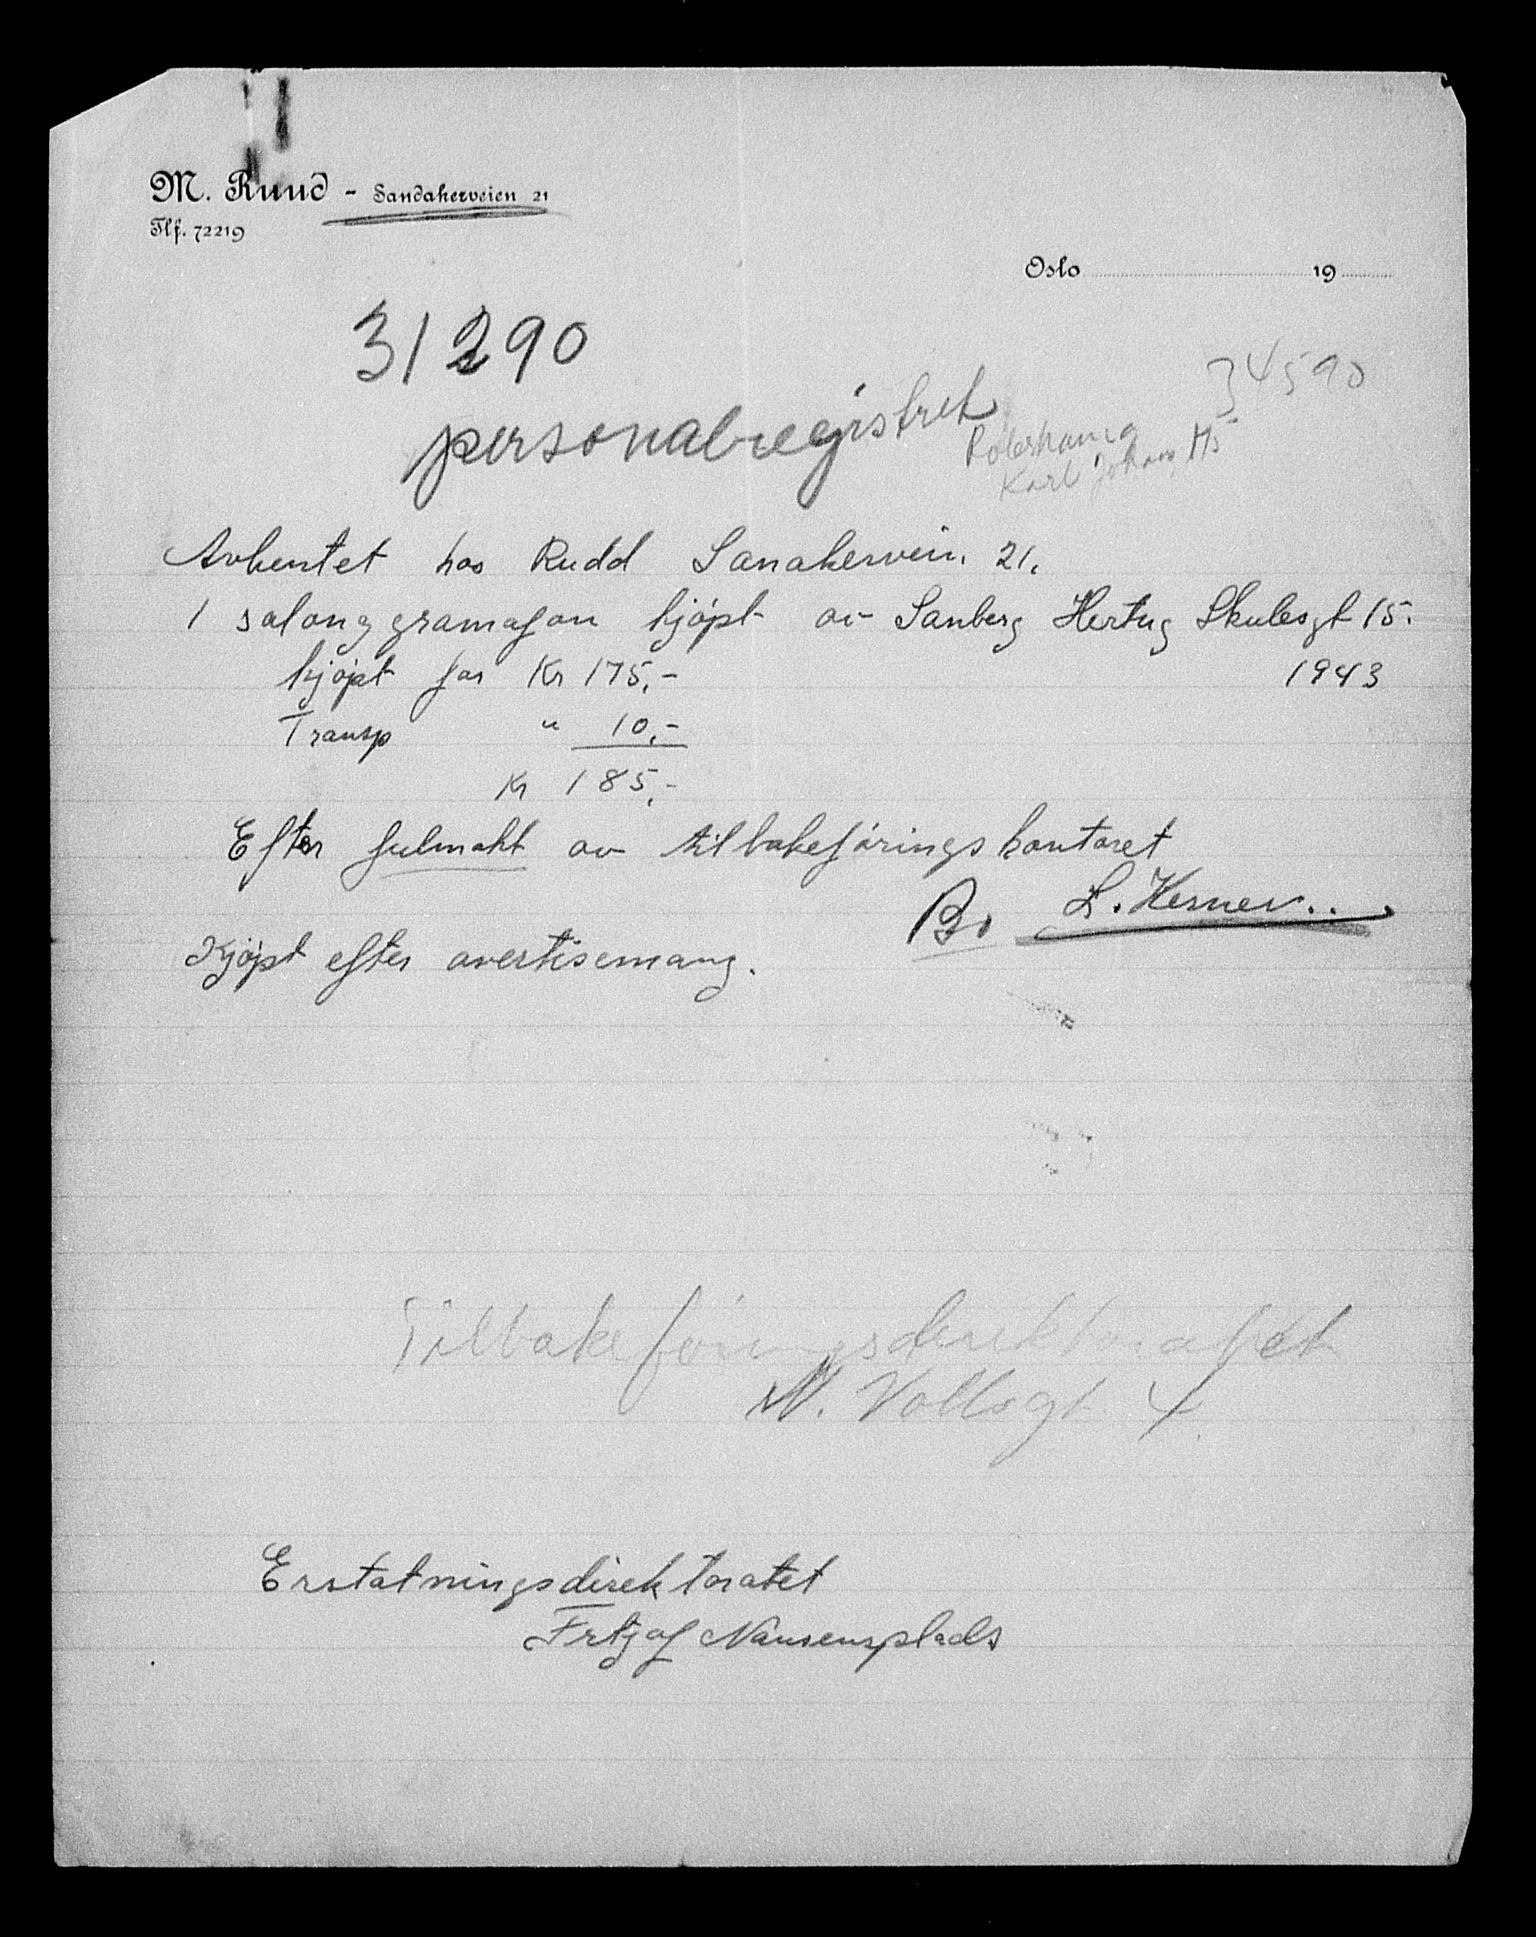 M. Ruud - Sandakerveien 21
Tlf. 72219
Oslo 19
31290
34590
personalregistret
Karl Johans
Avhentet hos Rudd Sanakervein. 21.
1 salonggramafon kjøpt av Sanberg Hertug Skulesgt 15.
kjøpt for Kr 175,- 1943
Transp " 10,-
Kr 185,-
Efter fulmakt av tilbakeføringskontoret
Bo L. Kesner..
Kjøpt efter avertisemang.
Tilbakeføringsdirektoratet
N. Vollsgt 4
Erstatningsdirektoratet
Frtjof Nansensplads